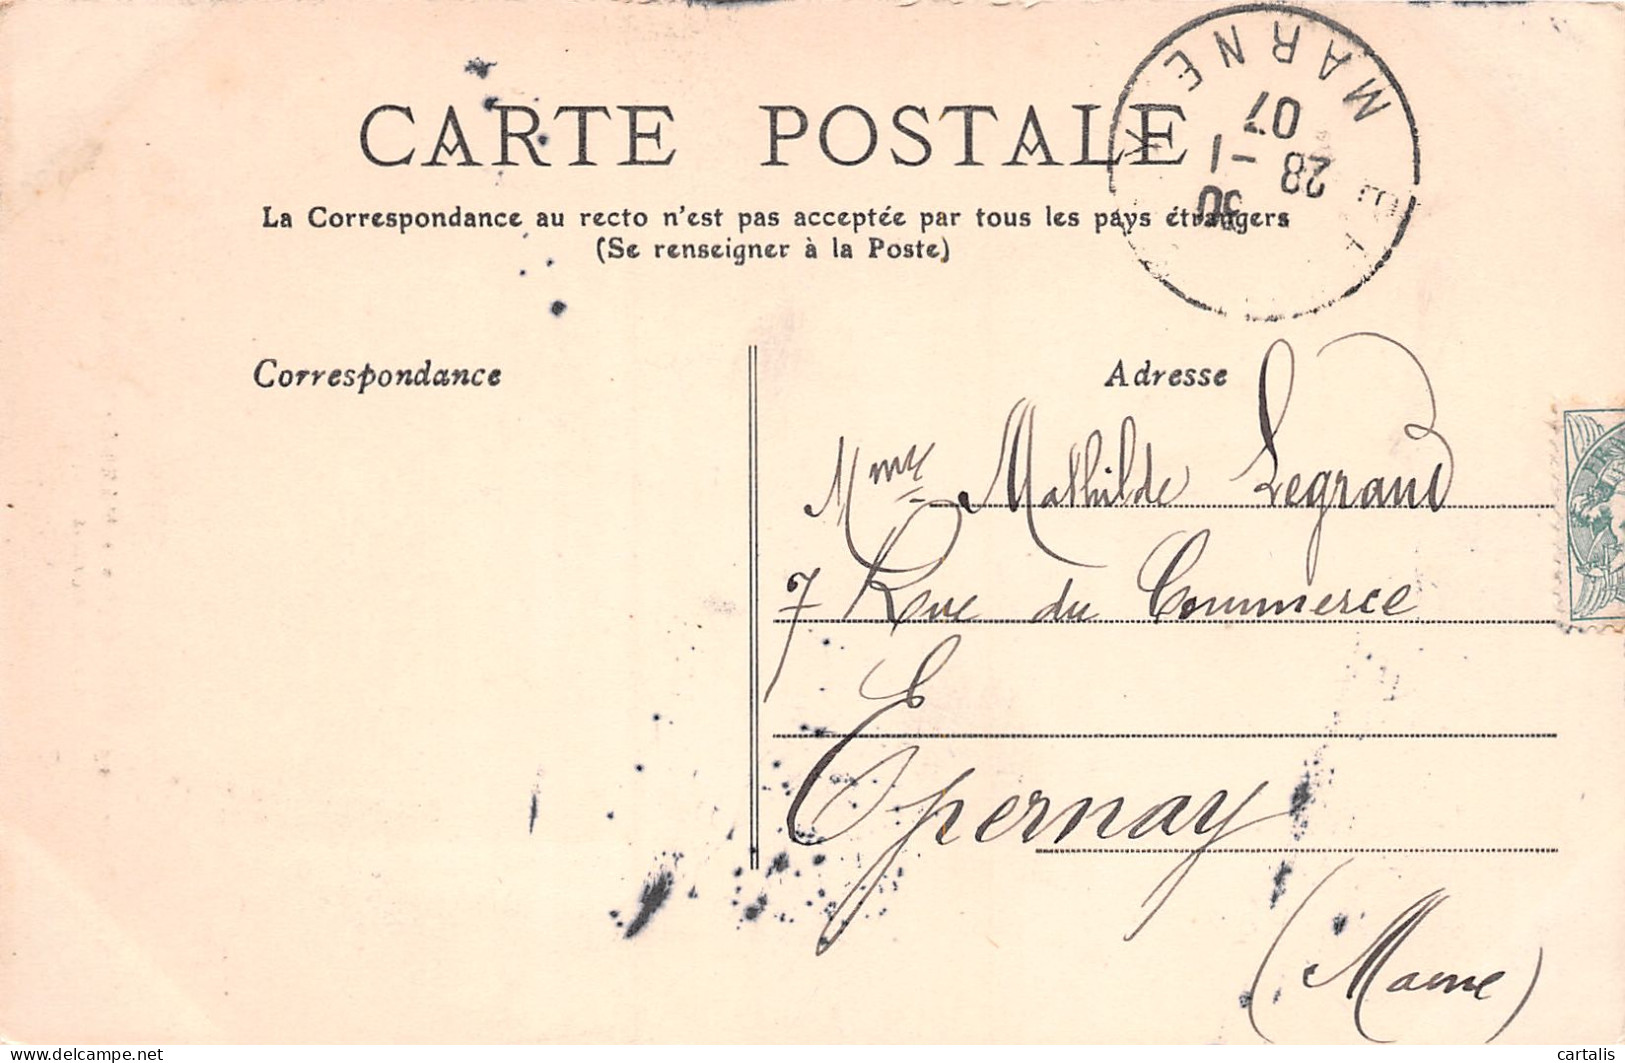 CARTE POSTALE
La Correspondance au recto n'est pas acceptée par tous les pays étrangers
(Se renseigner à la Poste)
MARNE
30
28 -1
07
Correspondance
Adresse
Mme Mathilde Legrand
7 Rue du Commerce
Epernay
(Marne)
delcampe.net
cartalis